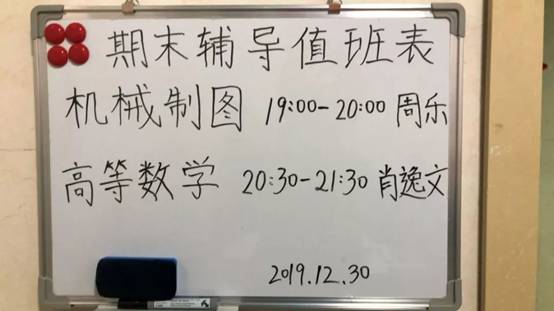 期末辅导值班表
机械制图 19:00-20:00 周乐
高等数学 20:30-21:30 肖逸文
2019.12.30